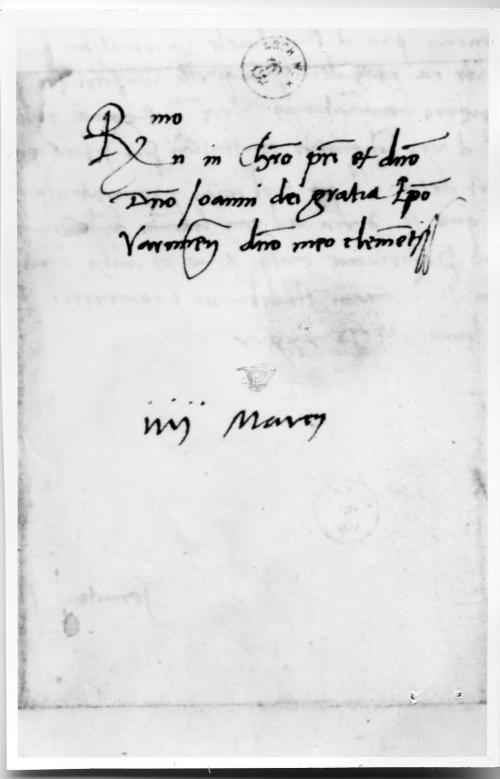 R mo
n in Chro pri et dno
Dno Joanni dei gratia Epo
Varmien dno meo clementiss
iiij Marcij